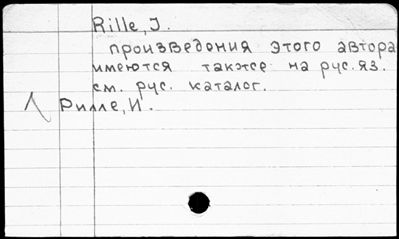 Rille, J.
произведения этого автора
имеются также на рус. яз.
см. рус. каталог.
Рилле, И.